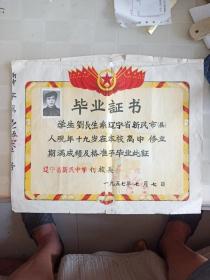 毕业証书
学生劉長生系辽宁省新民市(县)
人现年十九岁在本校高中修业
期满成绩及格准予毕业此証
辽宁省新民中学付校長
一九五七年七月七日